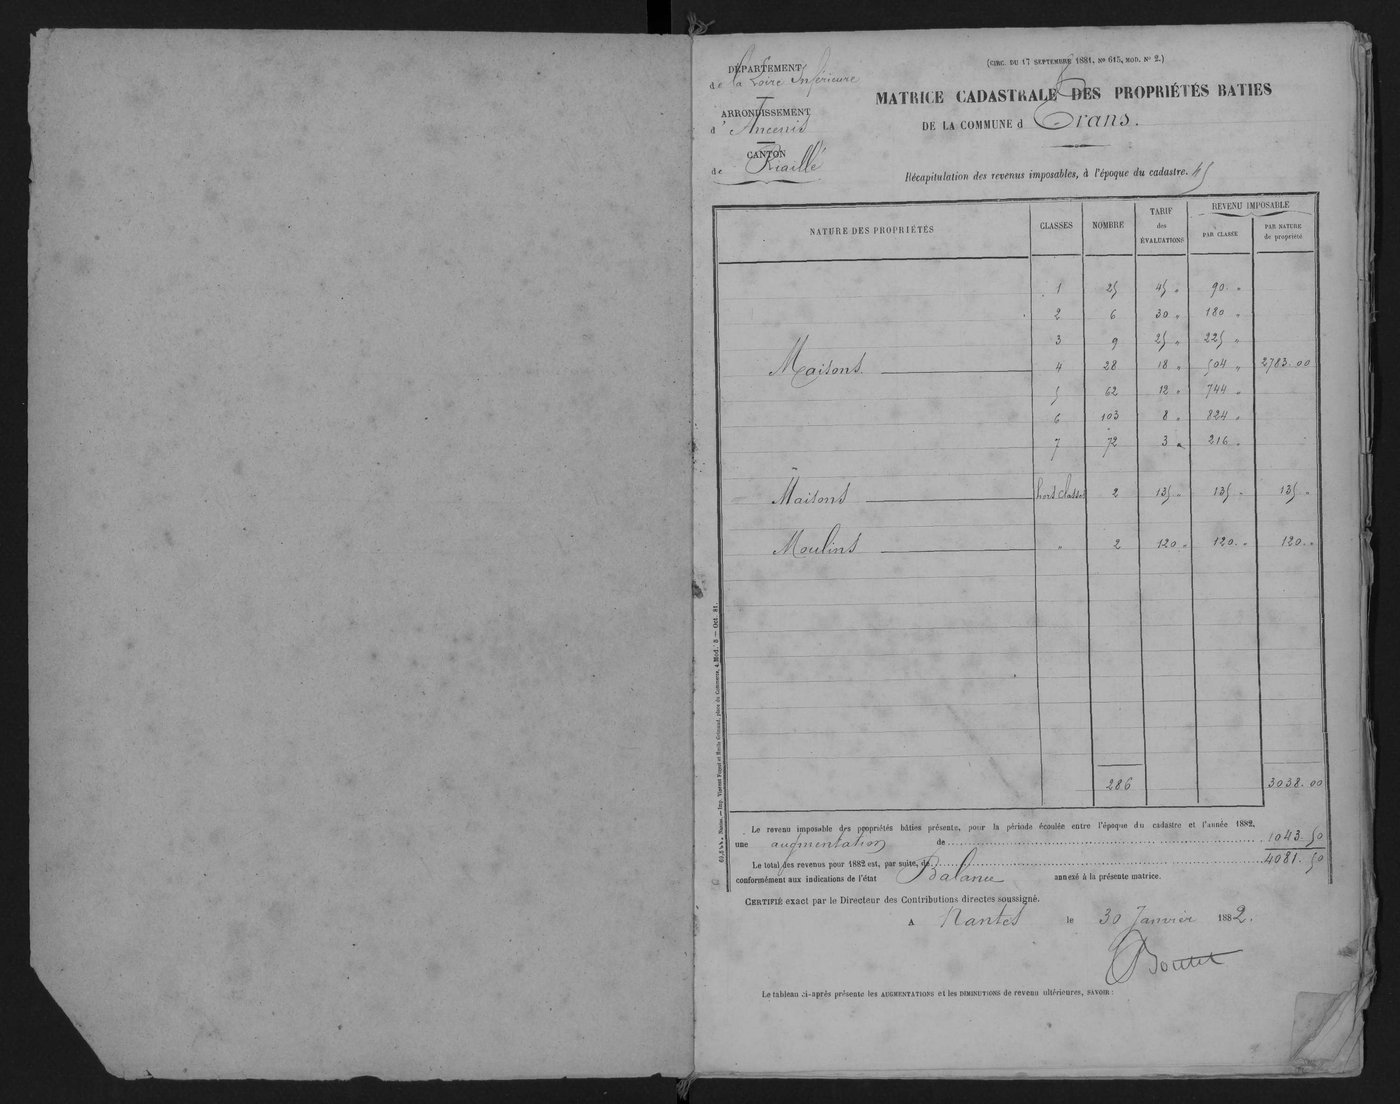 DÉPARTEMENT
de la Loire Inférieure
ARRONDISSEMENT
d'Ancenis
CANTON
de Riaillé
(CIRC. DU 17 SEPTEMBRE 1881, No 615, MOD. No 2.)
MATRICE CADASTRALE DES PROPRIÉTÉS BATIES
DE LA COMMUNE d Trans.
Récapitulation des revenus imposables, à l'époque du cadastre. 45
NATURE DES PROPRIÉTÉS CLASSES NOMBRE TARIF des ÉVALUATIONS REVENU IMPOSABLE
PAR CLASSE PAR NATURE de propriété
1 25 45 „ 90. „
2 6 30 „ 180 „
3 9 25 „ 225 „
Maisons. 4 28 18 „ 504 „ 2783.00
5 62 12 „ 744 „
6 103 8 „ 824 „
7 72 3 „ 216 „
Maisons hors classes 2 135 „ 135 „ 135 „
Moulins „ 2 120 „ 120. „ 120. „
286 3038.00
Le revenu imposable des propriétés bâties présente, pour la période écoulée entre l'époque du cadastre et l'année 1882,
une augmentation de 1043.50
Le total des revenus pour 1882 est, par suite, de 4081.50
conformément aux indications de l'état Balance annexé à la présente matrice.
CERTIFIÉ exact par le Directeur des Contributions directes soussigné.
A Nantes le 30 Janvier 1882.
Le tableau ci-après présente les AUGMENTATIONS et les DIMINUTIONS de revenu ultérieures, SAVOIR :